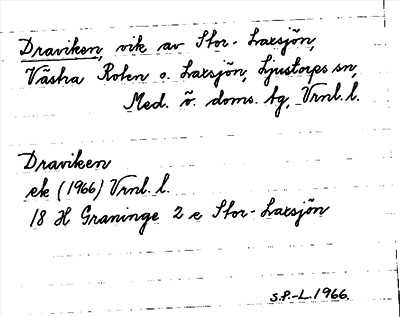 Draviken, vik av Stor-Laxsjön,
Västra Roten o. Laxsjön, Ljustorps sn,
Med. ö. doms. tg, Vrnl. l.
Draviken
ek (1966) Vrnl. l.
18 H Graninge 2 e Stor-Laxsjön
S.P.-L. 1966.